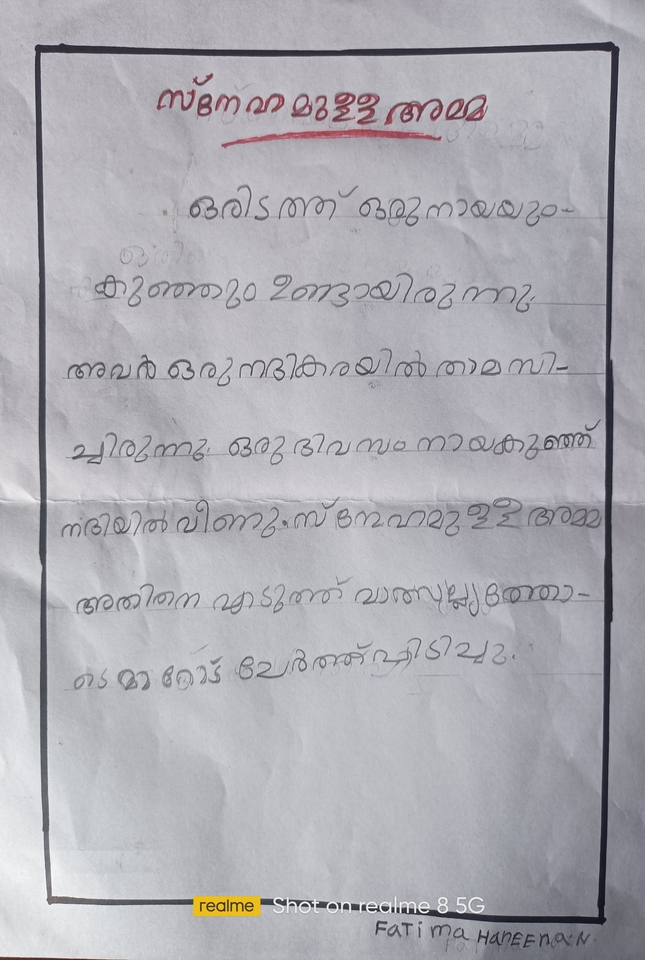 സ്നേഹമുള്ള അമ്മ
ഒരിടത്ത് ഒരു നായയും-
കുഞ്ഞും ഉണ്ടായിരുന്നു.
അവർ ഒരു നദികരയിൽ താമസി-
ച്ചിരുന്നു. ഒരു ദിവസം നായകുഞ്ഞ്
നദിയിൽ വീണു. സ്നേഹമുള്ള അമ്മ
അതിനെ എടുത്ത് വാത്സല്ല്യത്തോ-
ടെ മാറോട് ചേർത്ത് പിടിച്ചു.
realme Shot on realme 8 5G
FaTima HaNEEna.N.